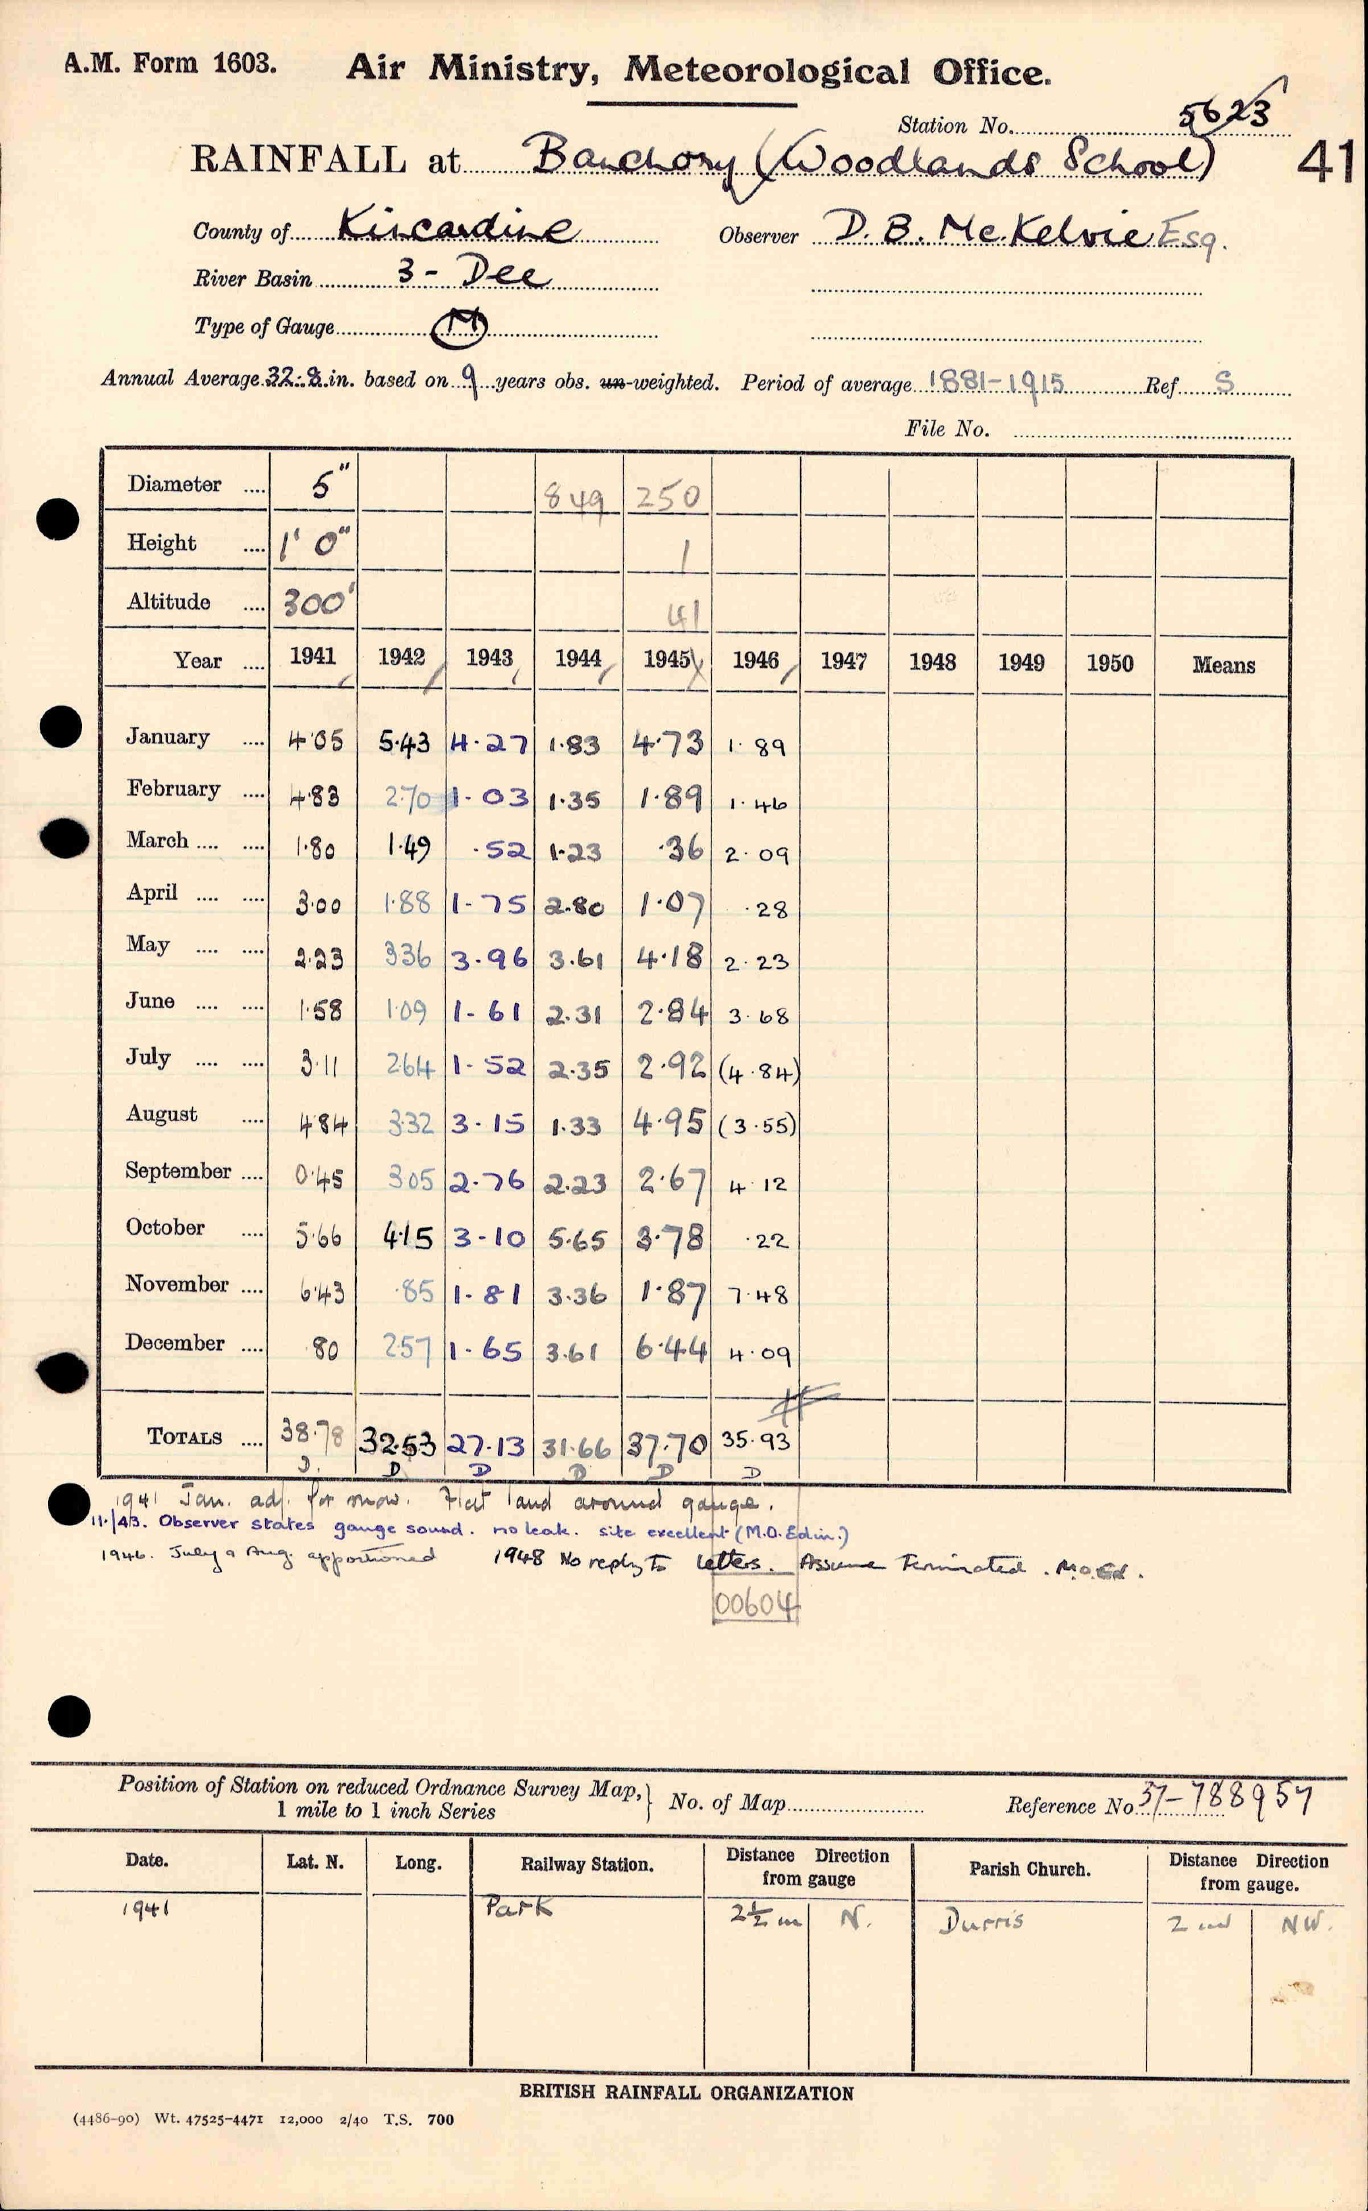 A.M. Form 1603. Air Ministry, Meteorological Office.
Station No. 5623
RAINFALL at Banchory (Woodlands School) 41
County of Kincardine Observer D. B. McKelvie Esq.
River Basin 3 - Dee
Type of Gauge M
Annual Average 32.8 in. based on 9 years obs. un-weighted. Period of average 1881-1915 Ref S
File No.
Diameter .... 5" 849 250
Height .... 1' 0" 1
Altitude .... 300' 41
Year .... 1941 1942 1943 1944 1945 1946 1947 1948 1949 1950 Means
January .... 4.05 5.43 4.27 1.83 4.73 1.89
February .... 4.83 2.70 1.03 1.35 1.89 1.46
March .... .... 1.80 1.49 .52 1.23 .36 2.09
April .... .... 3.00 1.88 1.75 2.80 1.07 .28
May .... .... 2.23 3.36 3.96 3.61 4.18 2.23
June .... .... 1.58 1.09 1.61 2.31 2.84 3.68
July .... .... 3.11 2.64 1.52 2.35 2.92 (4.84)
August .... 4.84 3.32 3.15 1.33 4.95 (3.55)
September .... 0.45 3.05 2.76 2.23 2.67 4.12
October .... 5.66 4.15 3.10 5.65 3.78 .22
November .... 6.43 .85 1.81 3.36 1.87 7.48
December .... .80 2.57 1.65 3.61 6.44 4.09
TOTALS .... 38.78 32.53 27.13 31.66 37.70 35.93
D. D D D D D
1941 Jan. adj. for snow. Flat land around gauge.
11/43. Observer states gauge sound. no leak. site excellent (M.O. Edin.)
1946. July & Aug. apportioned 1948 No reply to letters. Assume Terminated. M.O.Ed.
00604
Position of Station on reduced Ordnance Survey Map, } No. of Map Reference No 37-788957
1 mile to 1 inch Series
Date. Lat. N. Long. Railway Station. Distance Direction from gauge Parish Church. Distance Direction from gauge.
1941 Park 2½ m N. Durris 2 NW.
BRITISH RAINFALL ORGANIZATION
(4486-90) Wt. 47525-4471 12,000 2/40 T.S. 700